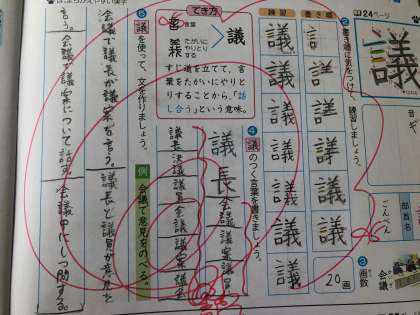 24ページ
議
音
ぎ
部首名
ごんべん
2 書き順に気をつけて、練習しましょう。
書き順
練習
議
議
議
議
議
3 画数
20画
会議
でき方
言葉
たがいに
やりとり
する
議
すじ道を立てて、言
葉をたがいにやりと
りすることから、「話
し合う」という意味。
4 議のつく言葉を書きましょう。
議長
会議
議案
議員
議長
決議
議員
会議
議案
議会
5 議を使って、文を作りましょう。
例 会議で意見をのべる。
会議で議長が議案を言う。
議長と議員が意見を
言う。
会議で議案について話す。